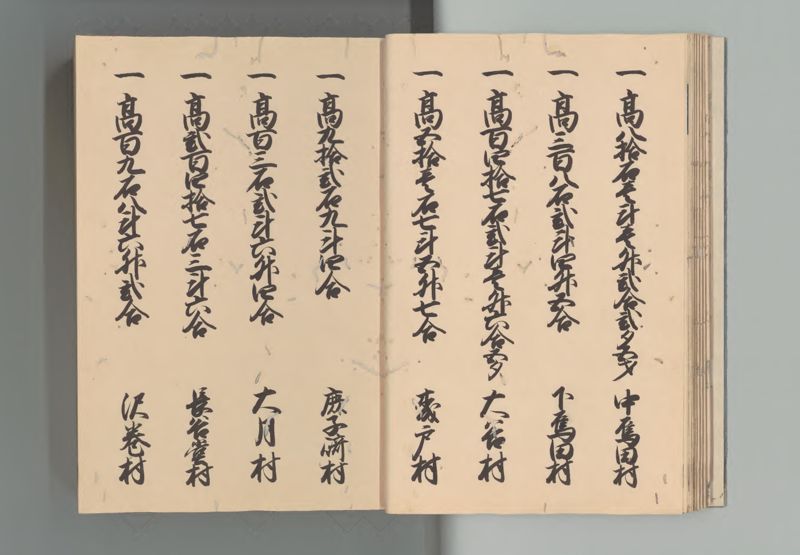 一 高八拾石壱斗壱升弐合弐夕五才 中鳥田村
一 高三百八石弐斗四升五合 下鳥田村
一 高百四拾七石弐斗壱升六合五夕 大谷村
一 高五拾壱石七斗五升七合 戸村
一 高九拾弐石九斗四合 子村
一 高百三石弐斗六升四合 大月村
一 高弐百四拾七石三斗六合 長谷堂村
一 高百九石八斗六升弐合 沢巻村